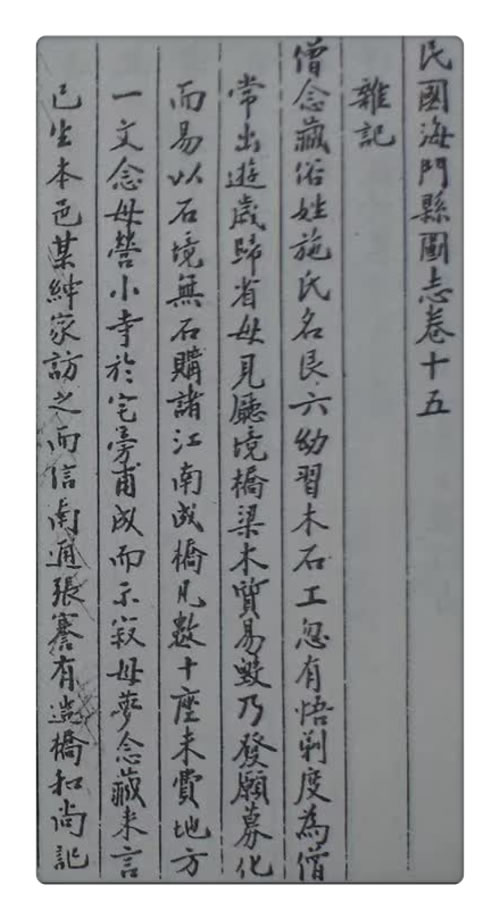 民國海門縣圖志卷十五
雜記
僧念藏俗姓施氏名良六幼習木石工忽有悟剃度為僧
常出遊歲歸省母見廳境橋梁木質易毀乃發願募化
而易以石境無石購諸江南成橋凡數十座未費地方
一文念母營小寺於宅旁甫成而示寂母夢念藏來言
已生本邑某紳家訪之而信南通張謇有造橋和尚記